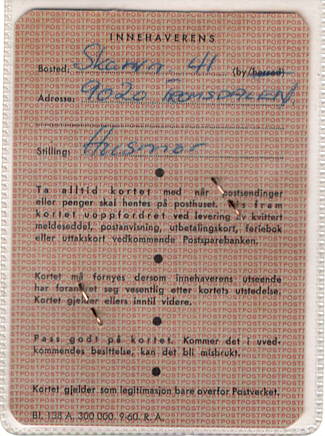 INNEHAVERENS
Bosted: Skarvn 41 (by/herred)
Adresse: 9020 TROMSDALEN
Stilling: Husmor
Ta alltid kortet med når postsendinger
eller penger skal hentes på posthuset. Vis fram
kortet uoppfordret ved levering av kvittert
meldeseddel, postanvisning, utbetalingskort, feriebok
eller uttakskort vedkommende Postsparebanken.
Kortet må fornyes dersom innehaverens utseende
har forandret seg vesentlig etter kortets utstedelse.
Kortet gjelder ellers inntil videre.
Pass godt på kortet. Kommer det i uved-
kommendes besittelse, kan det bli misbrukt.
Kortet gjelder som legitimasjon bare overfor Postverket.
Bl. 138 A. 300 000. 9-60. R. A.